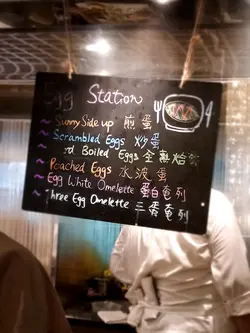 Egg Station
Sunny Side up 煎蛋
Scrambled Eggs 炒蛋
rd Boiled Eggs 全熟烚蛋
Poached Eggs 水波蛋
Egg White Omelette 蛋白奄列
Three Egg Omelette 三蛋奄列